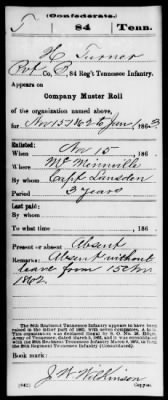 (Confederate.)
T 84 Tenn.
H Turner
Pvt Co. B, 84 Reg't Tennessee Infantry.
Appears on
Company Muster Roll
of the organization named above,
for Nov 15, 1862 to Jan 1, 1863
Enlisted:
When Nov 15, 186
Where McMinnville
By whom Capt Lansden
Period 3 years
Last paid:
By whom
To what time , 186
Present or absent Absent
Remarks: Absent without
leave from 15 Nov
1862
Book mark:
J. W. Wilkinson
(642) Copyist.